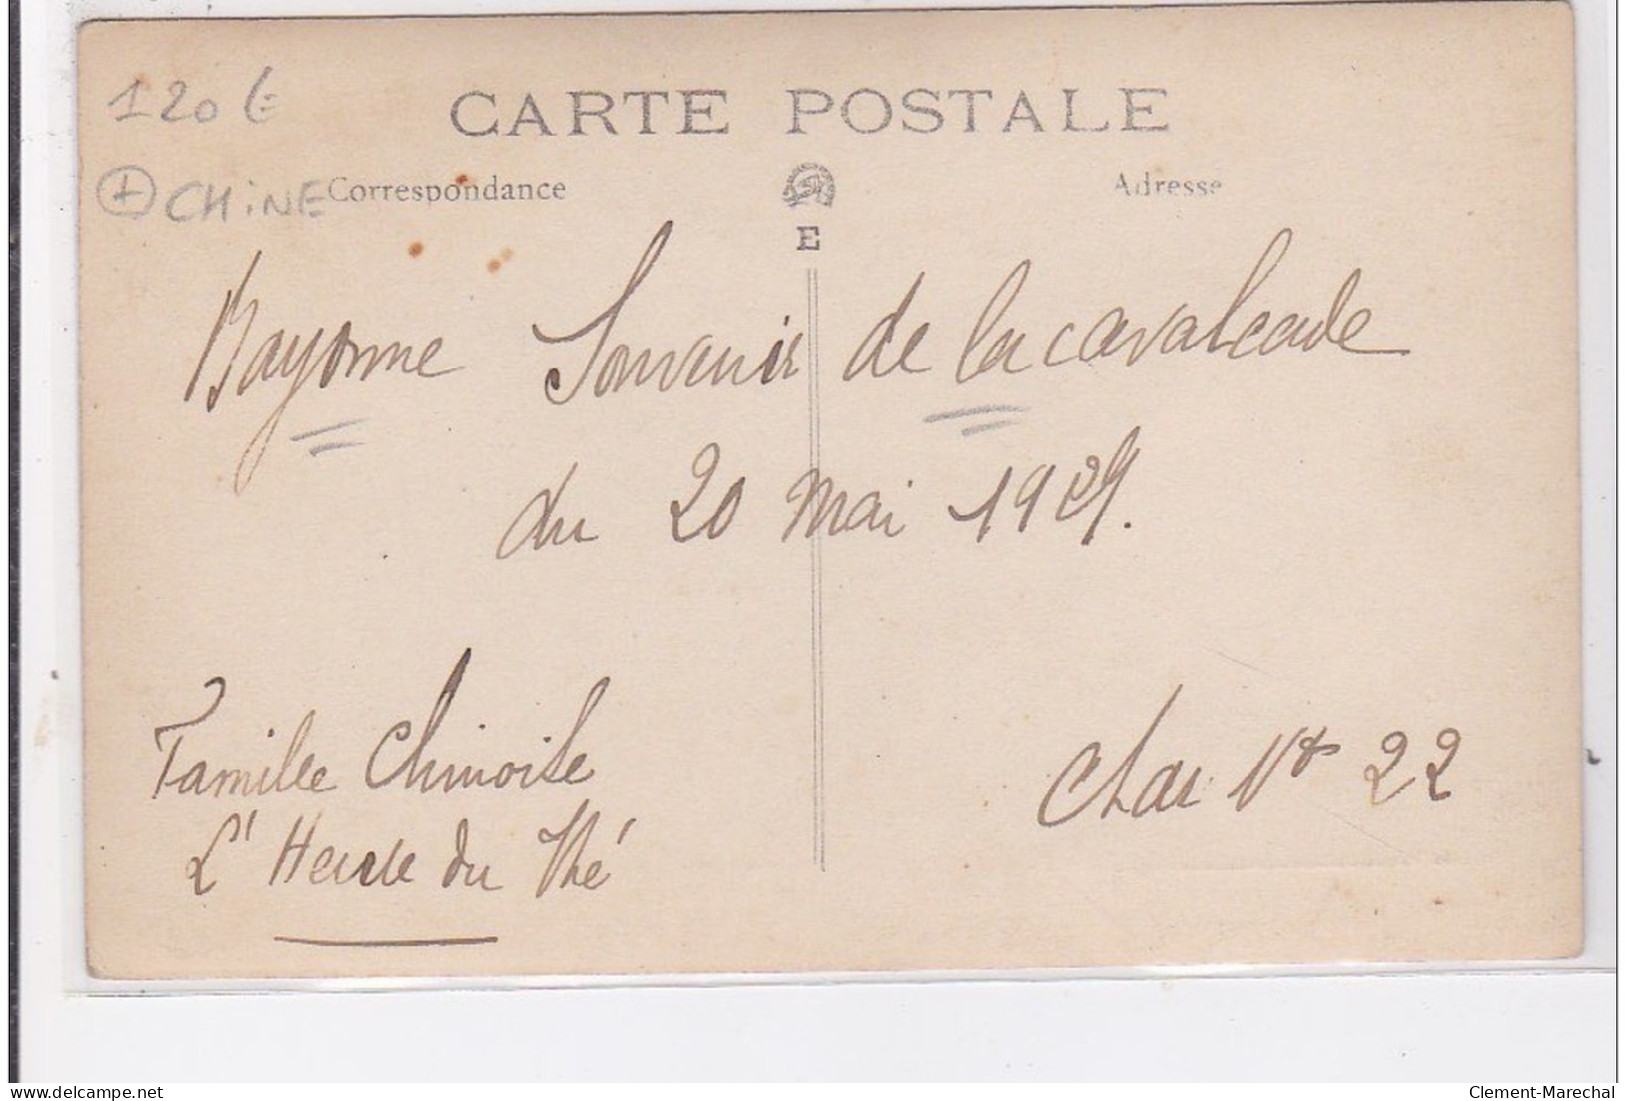 120 €
CARTE POSTALE
+ CHINE
Correspondance
Adresse
E
Bayonne Souvenir de la cavalcade
du 20 mai 1909.
Famille Chinoise
L'Heure du Thé
Char No 22
delcampe.net
Clement-Marechal